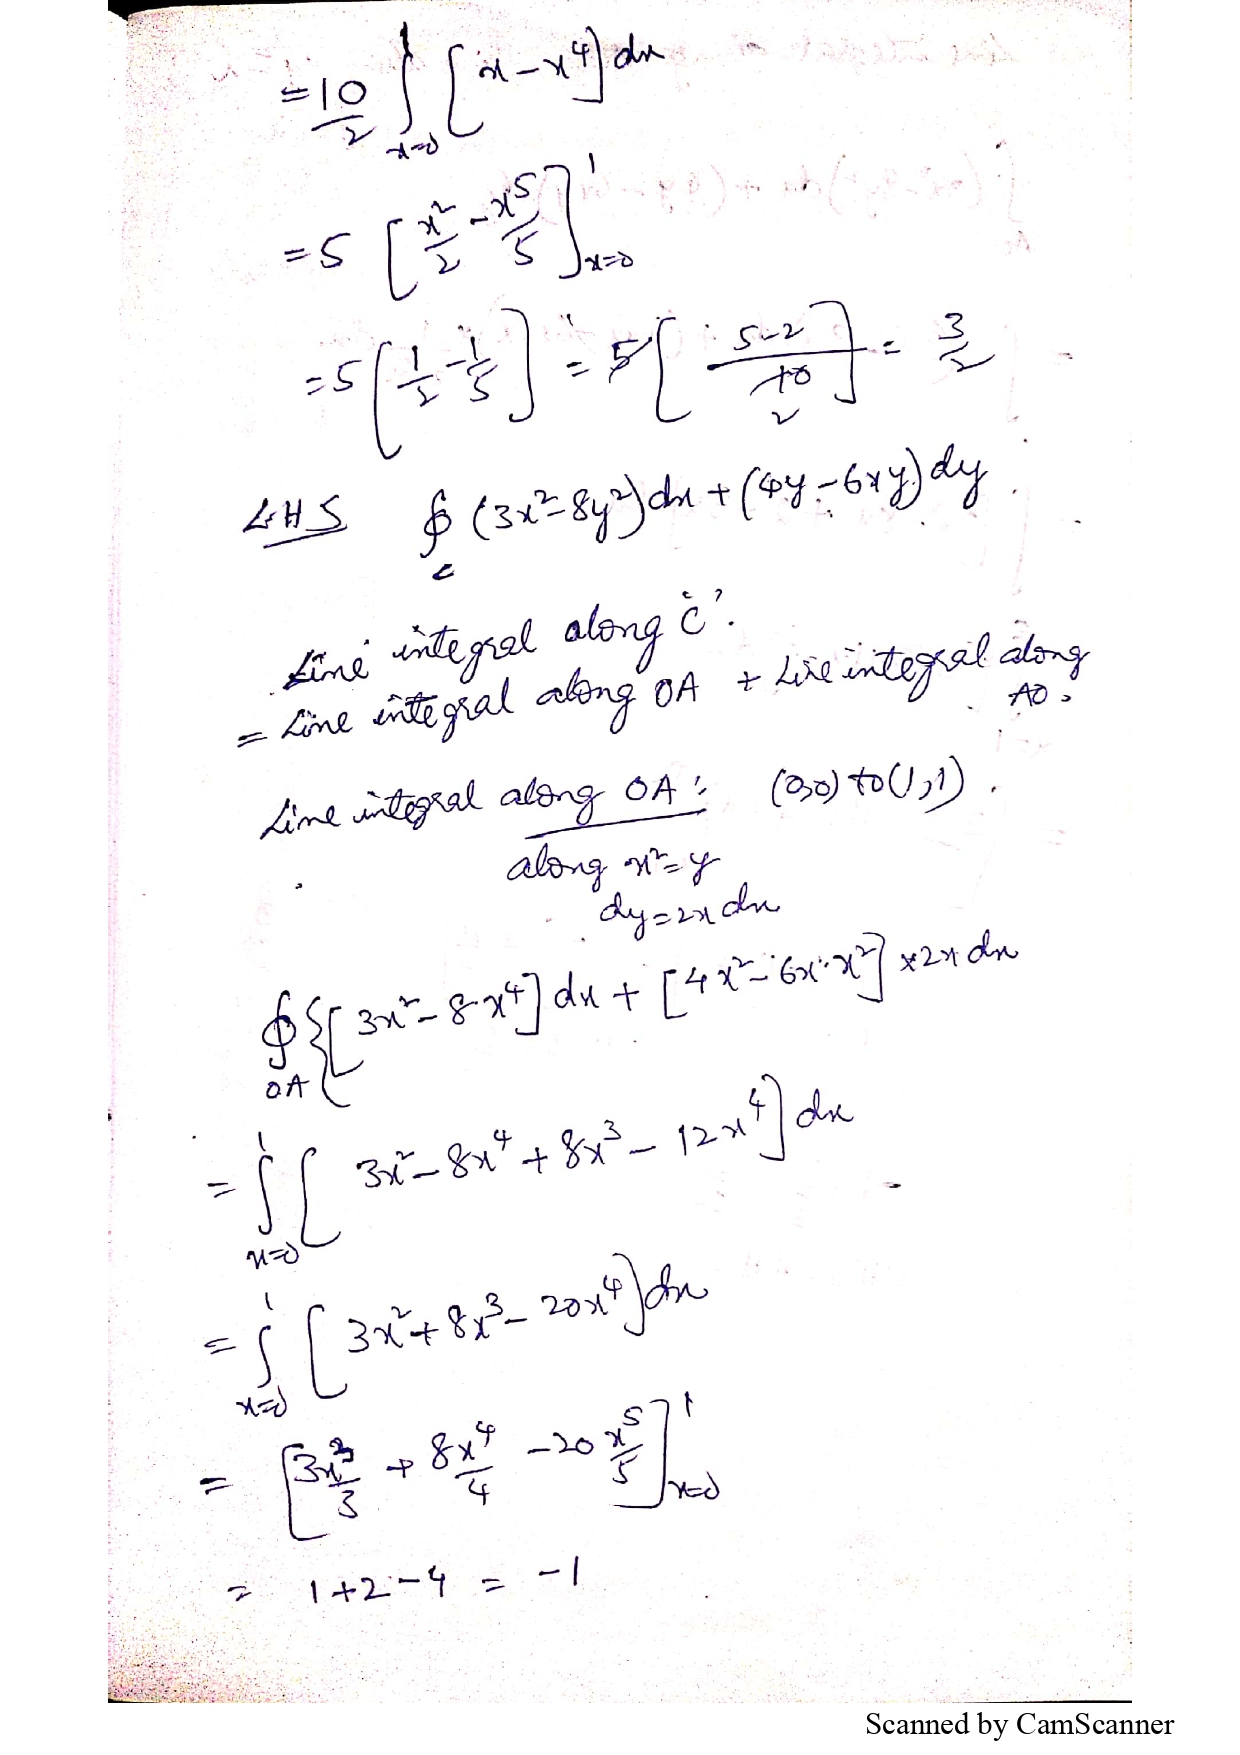 = 10/2 ∫_{x=0}^{1} [x - x^4] dx
= 5 [x^2/2 - x^5/5]_{x=0}^{1}
= 5 [1/2 - 1/5] = 5 [5-2/10 2] = 3/2
LHS ∮_c (3x^2 - 8y^2) dx + (4y - 6xy) dy.
Line integral along 'c'.
= Line integral along OA + Line integral along AO.
Line integral along OA: (0,0) to (1,1).
along x^2 = y
dy = 2x dx
∮_{OA} {[3x^2 - 8·x^4] dx + [4x^2 - 6x·x^2] × 2x dx
= ∫_{x=0}^{1} [3x^2 - 8x^4 + 8x^3 - 12x^4] dx
= ∫_{x=0}^{1} [3x^2 + 8x^3 - 20x^4] dx
= [3x^3/3 + 8x^4/4 - 20 x^5/5]_{x=0}^{1}
= 1+2-4 = -1
Scanned by CamScanner